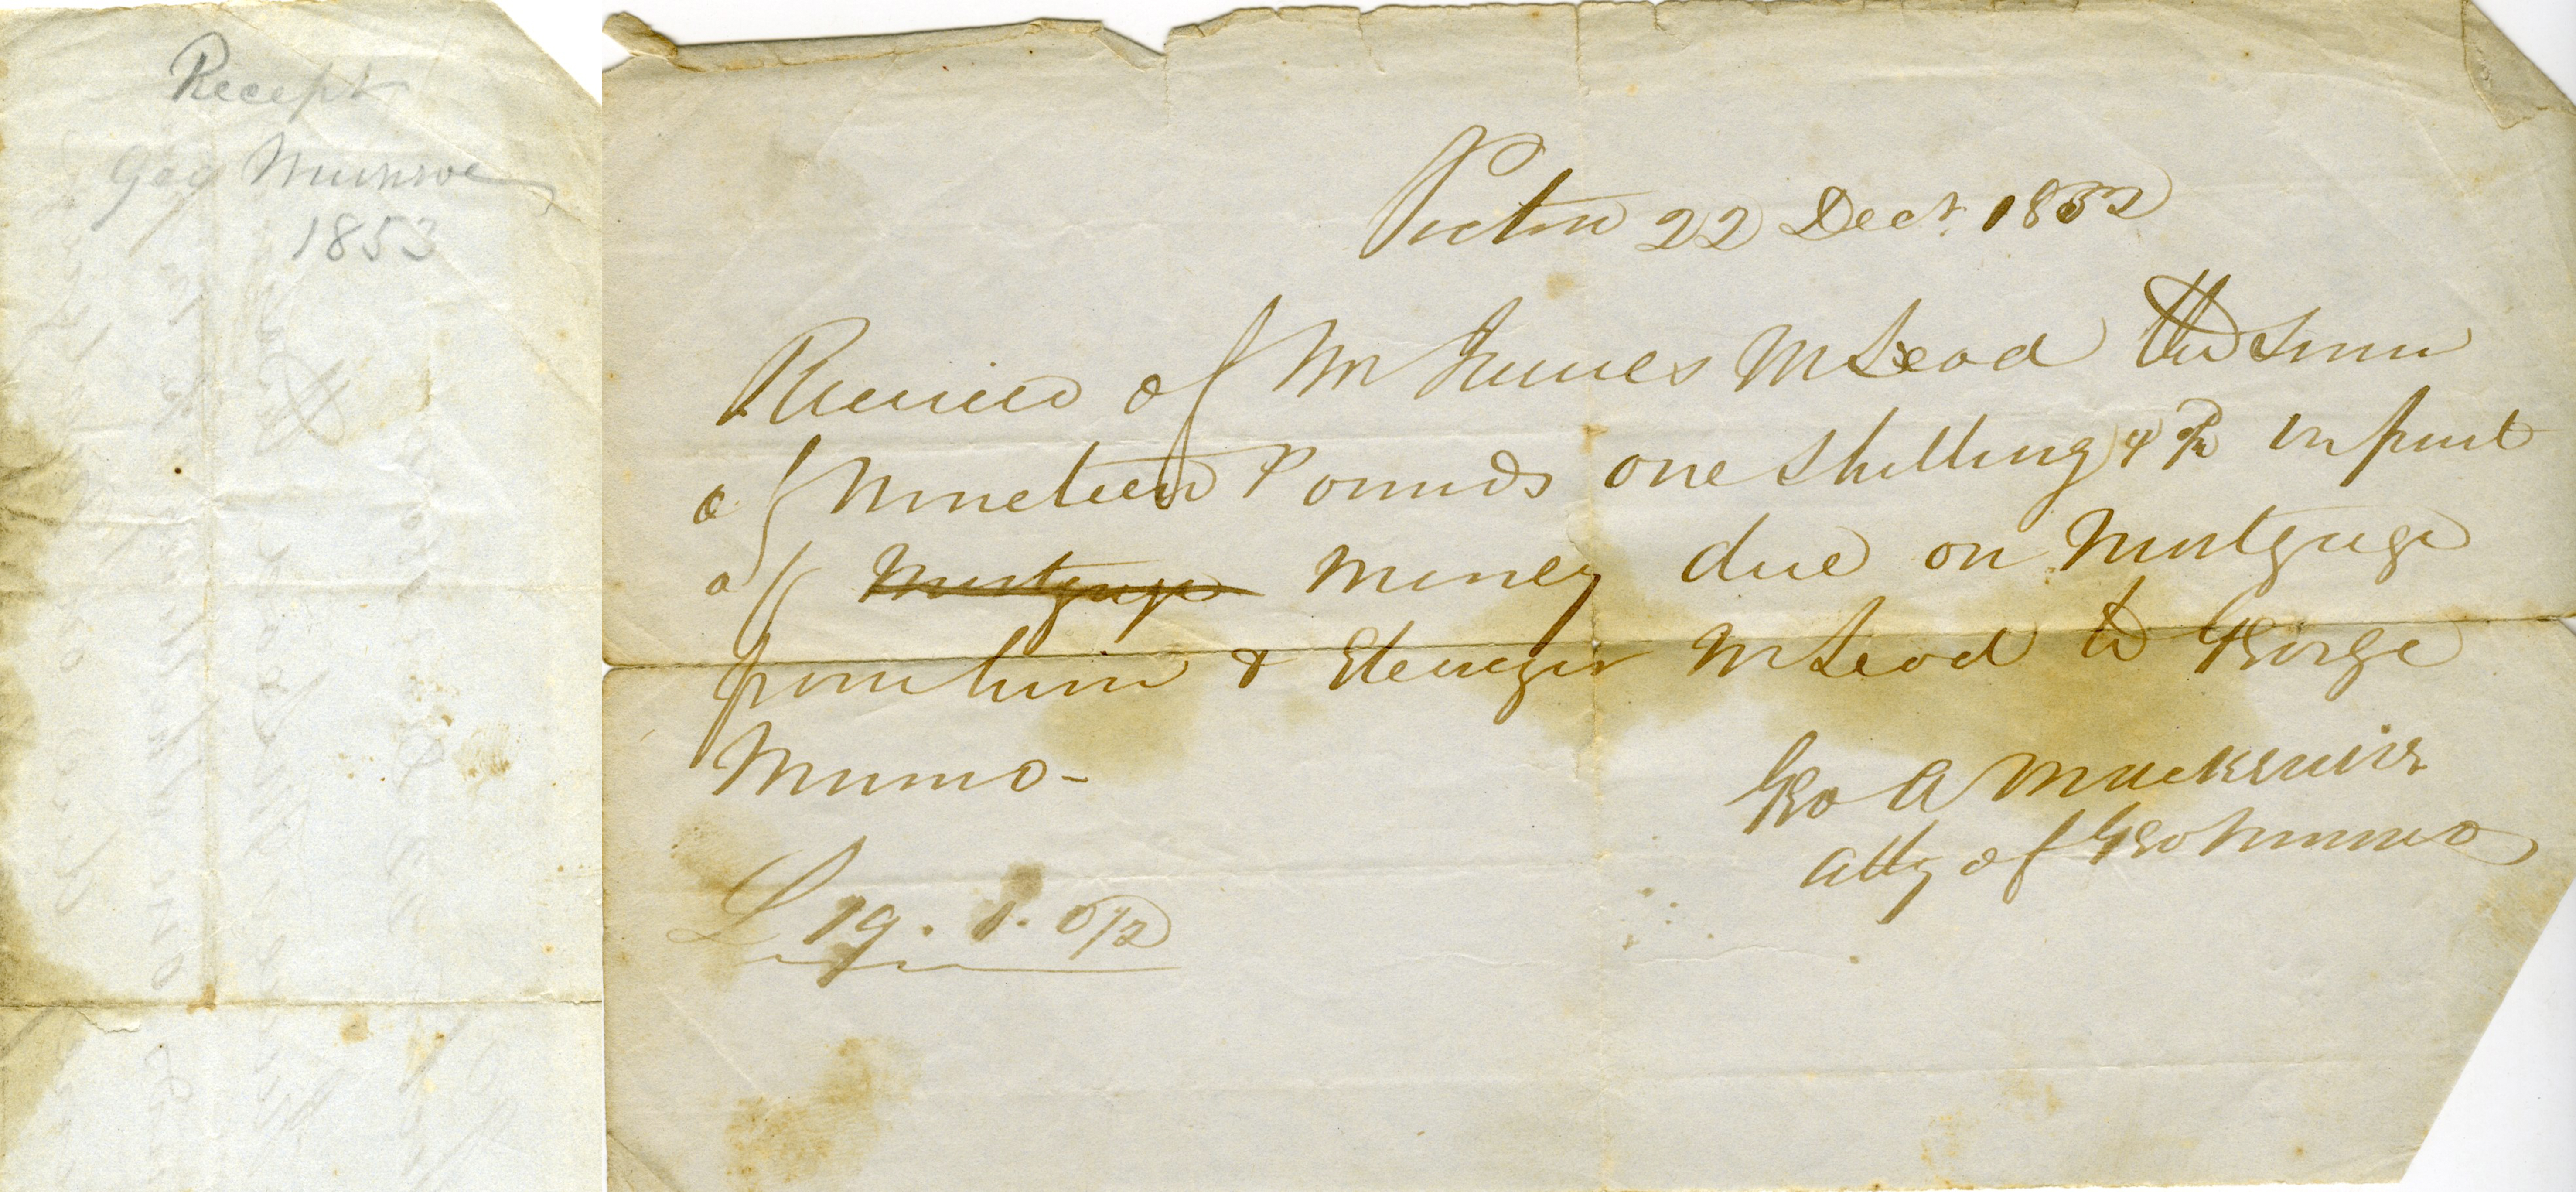 Recept
Geo Munroe
1853
Pictou 22 Decr 1853
Received of Mr James McLeod the Sum
of Nineteen Pounds one Shilling & in part
of Mortgage Money due on Mortgage
from him & Ebenezer McLeod to George
Munro-
Geo A Mackenzie
atty of Geo Munro
£ 19. 1. 0½